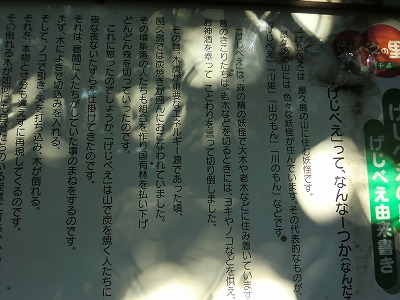 久の里
げじべえ由来書き
「げじべえ」って、なんなーつか(なんだ
「げじべえ」は、屋久島の山に住む妖怪です。
屋久島の山には、色々な妖怪が住んでいます。その代表的なものが、
「げじべえ」「山姫」「山のもん」「川のもん」などです。
「げじべえ」は、森の精の妖怪で大木や老木などに住み着いています。
昔のきこりたちは、木などを切るときには、ヨキやノコなどを供え、
お神酒を奉って ことわりを言って切り倒しました。
その昔、木炭が重要なエネルギー源であった頃、
屋久島では炭焼きが盛んにおこなわれていました。
その頃集落の人たちも組合を作り国有林を払い下げ
どんどん木を切っていったのです。
これに怒ったのでしょうか「げじべえ」は山で炭を焼く人たちに
夜な夜ないたずらを仕掛けて来たのです。
それは、昼間に人たちがしていた事のまねをするのです。
まず、木によきで切込みを入れる、
そして、ノコで引き、矢を打ち込み、木が倒れる。
それを、本物とすんぶん違えずに再現してくるのです。
その倒れる木が